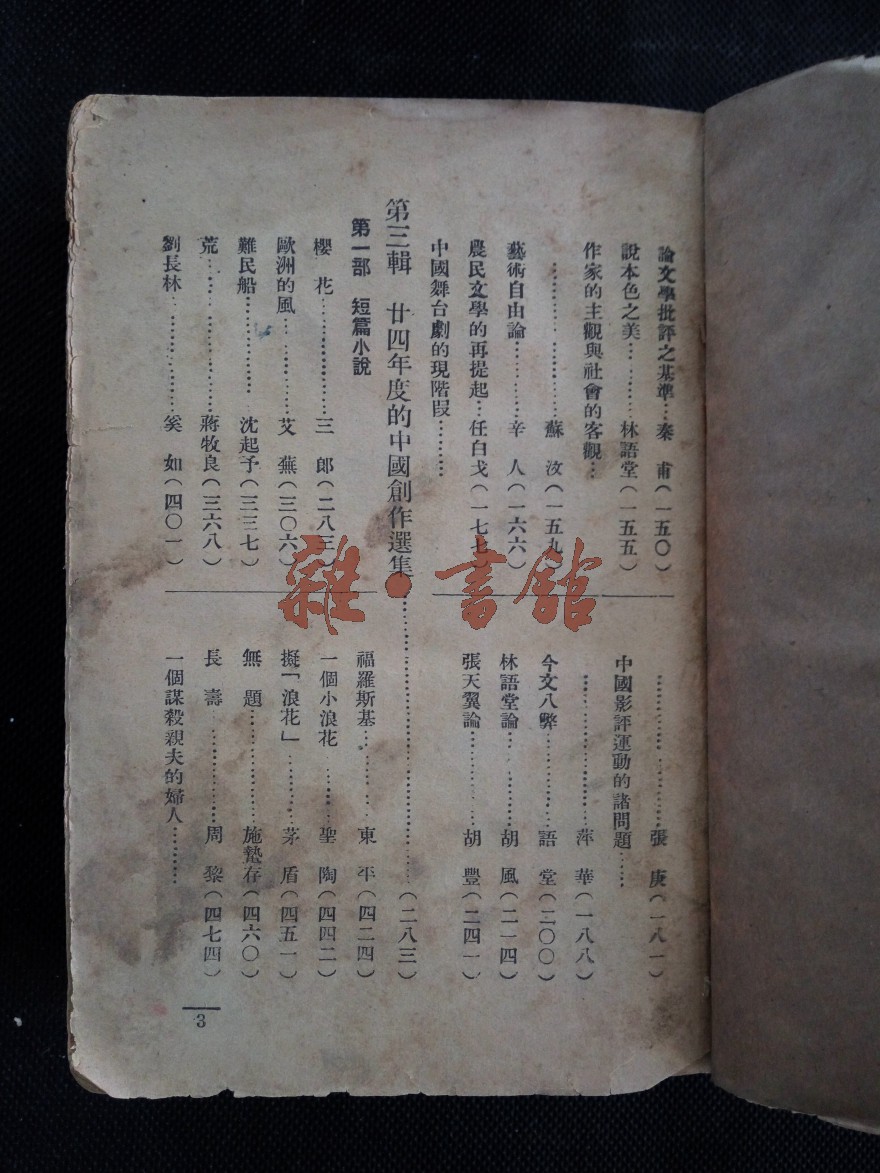 論文學批評之基準…秦　甫（一五〇）
說本色之美…………林語堂（一五五）
作家的主觀與社會的客觀…
……………蘇　汶（一五九）
藝術自由論…………辛　人（一六六）
農民文學的再提起…任白戈（一七七）
中國舞台劇的現階段………
……………張　庚（一八一）
中國影評運動的諸問題……
……………萍　華（一八八）
今文八弊……………語　堂（二〇〇）
林語堂論……………胡　風（二一四）
張天翼論……………胡　豐（二四一）
第三輯　廿四年度的中國創作選集……………（二八三）
第一部　短篇小說
櫻　花……………三　郎（二八三）
歐洲的風…………艾　蕪（三〇六）
難民船……………沈起予（三三七）
荒…………………蔣牧良（三六八）
劉長林……………奚　如（四〇一）
福羅斯基…………東　平（四二四）
一個小浪花………聖　陶（四四二）
擬「浪花」………茅　盾（四五一）
無　題……………施蟄存（四六〇）
長　壽……………周　黎（四七四）
一個謀殺親夫的婦人…………
3
雜·書館